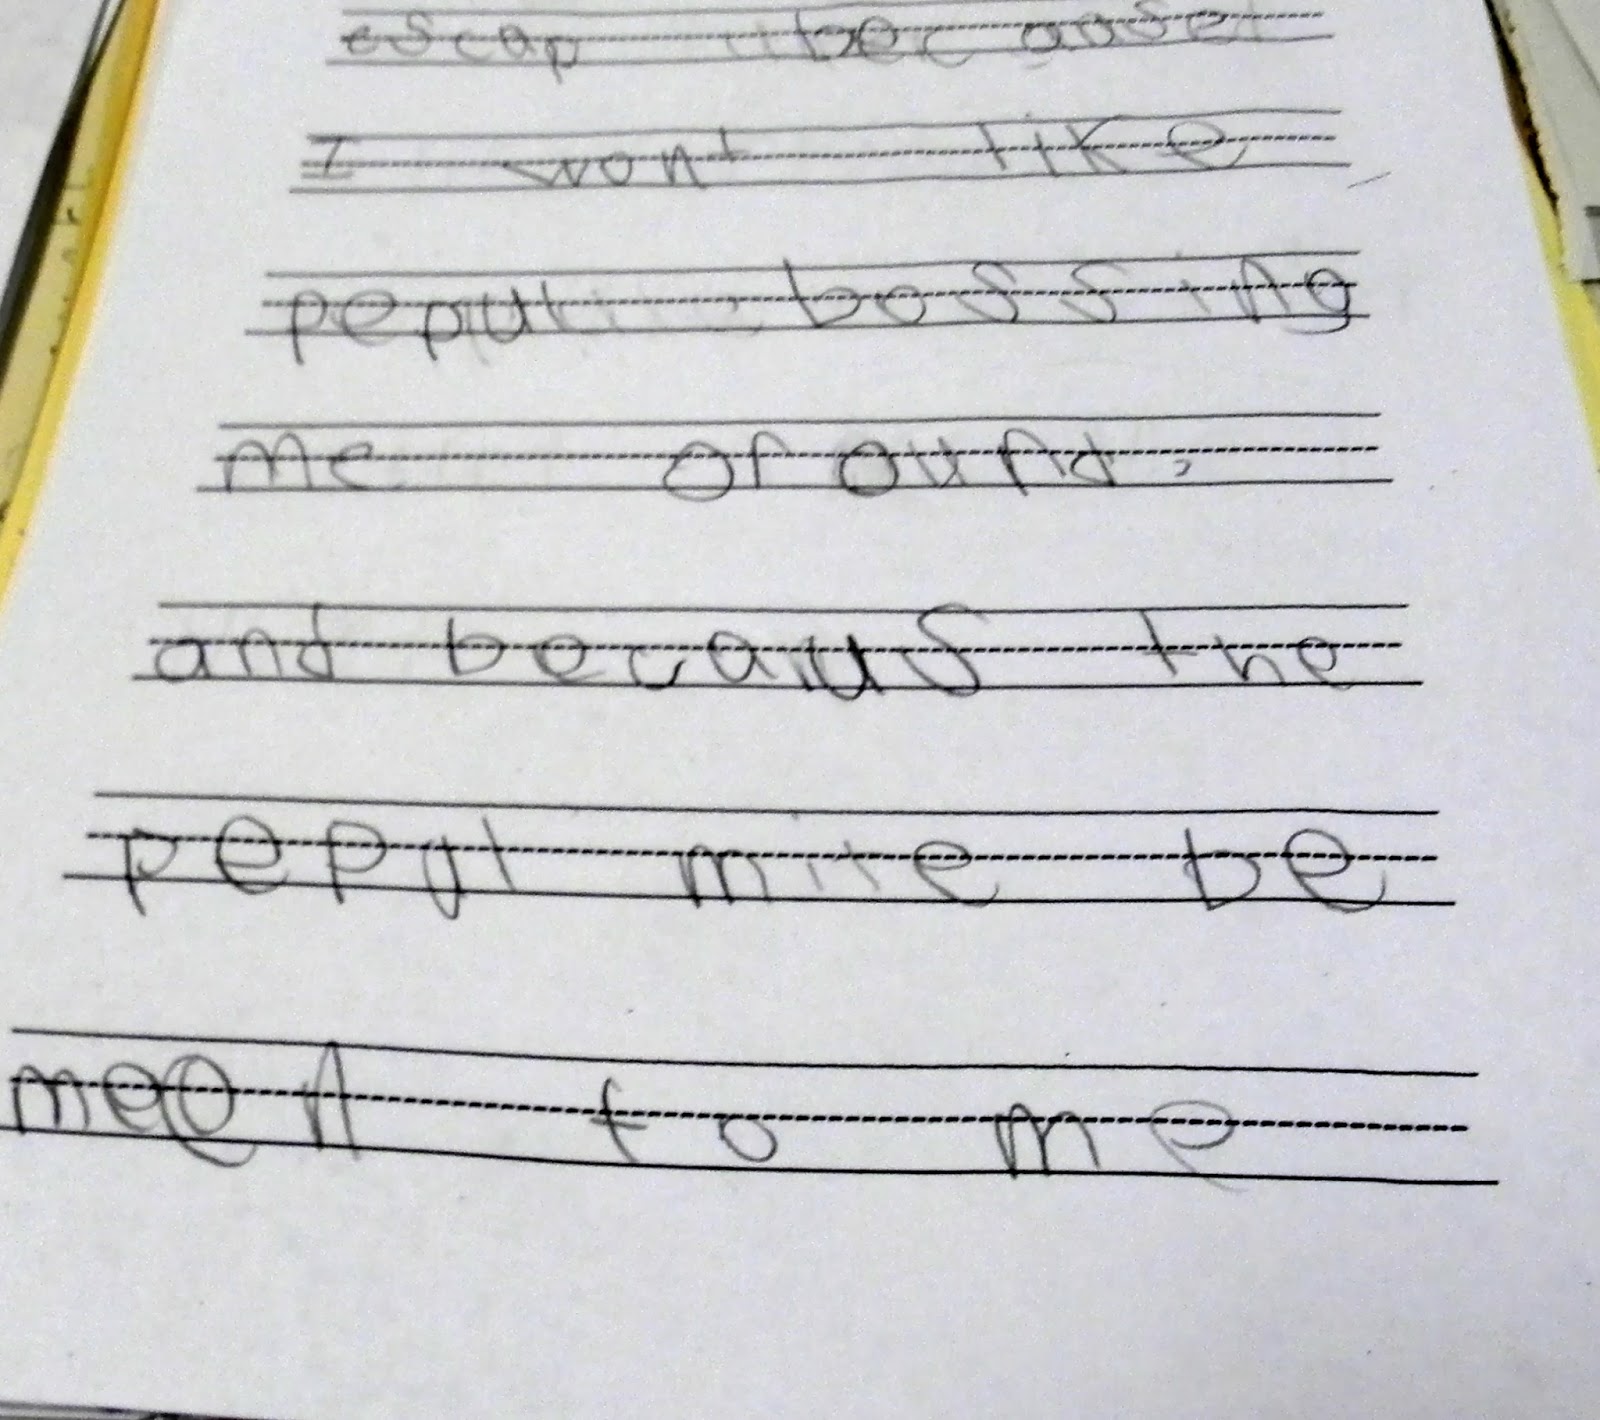 escap becaose
I wont like
pepul bossing
me oround,
and becaus the
pepul mite be
meen to me